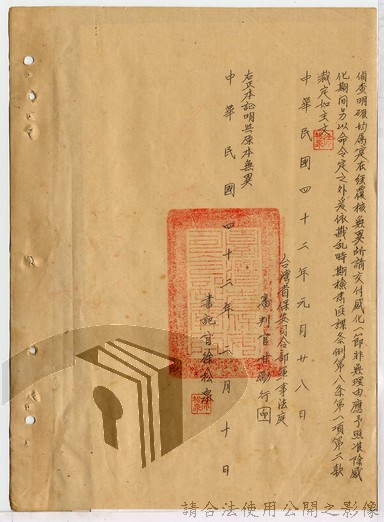 偵查明確切屬實在經覆核無異所請交付感化一節非無理由應予照准除感
化期間另以命令定之外爰依戡亂時期檢肅匪諜条例第八条第一項第二款
裁定如主文
中華民國四十三年元月廿八日
台灣省保安司令部軍事法庭
審判官 行
右正本証明與原本無異
中華民國四十三年二月十日
書記官徐松
請合法使用公開之影像